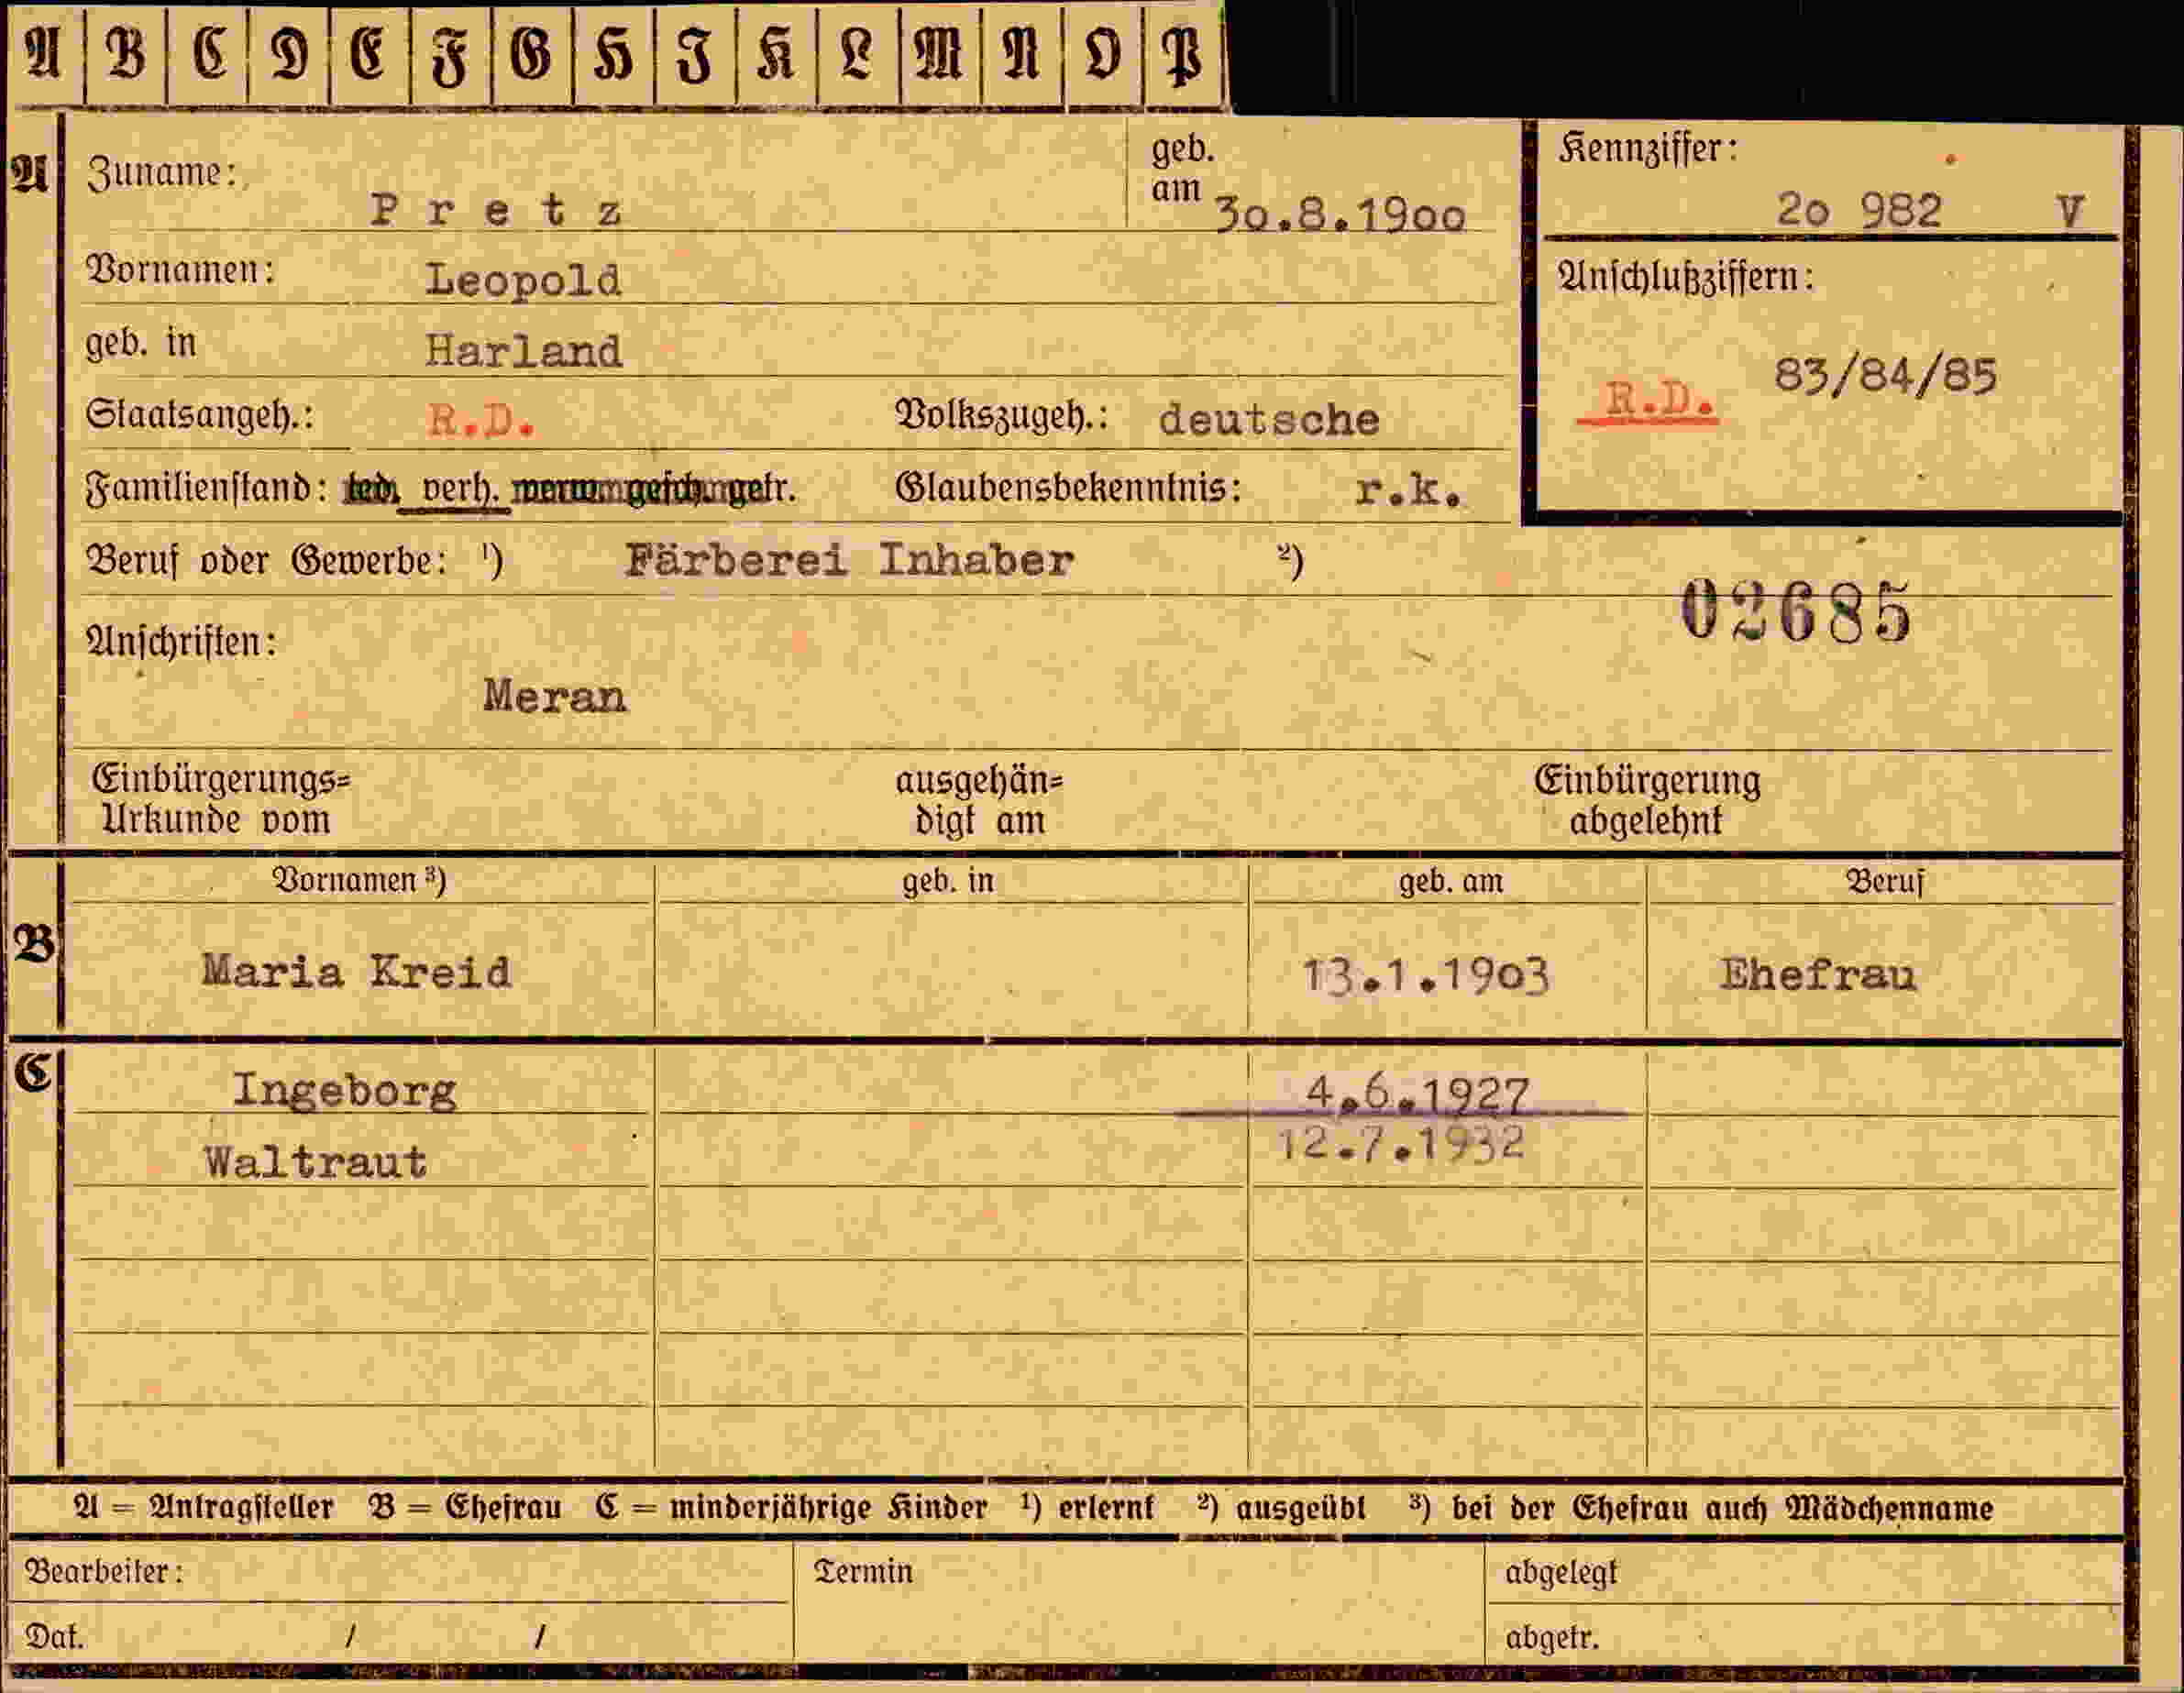 A B C D E F G H I K L M N O P
A Zuname: P r e t z geb. am 30.8.1900
Kennziffer: 20 982 V
Vornamen: Leopold
Anschlußziffern:
geb. in Harland
83/84/85
R.D.
Staatsangeh.: R.D. Volkszugeh.: deutsche
Familienstand: led. verh. getr. Glaubensbekenntnis: r.k.
Beruf oder Gewerbe: 1) Färberei Inhaber 2)
02685
Anschriften:
Meran
Einbürgerungs= ausgehän= Einbürgerung
Urkunde vom digt am abgelehnt
Vornamen 3) geb. in geb. am Beruf
B Maria Kreid 13.1.1903 Ehefrau
C Ingeborg 4.6.1927
Waltraut 12.7.1932
A = Antragsteller B = Ehefrau C = minderjährige Kinder 1) erlernt 2) ausgeübt 3) bei der Ehefrau auch Mädchenname
Bearbeiter: Termin abgelegt
Dat. / / abgetr.